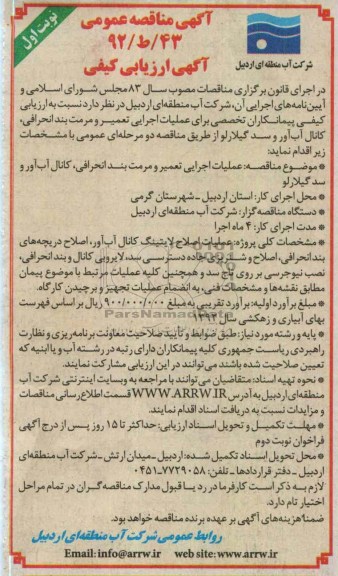 آگهی مناقصه عمومی
۹۲/ط/۴۳
آگهی ارزیابی کیفی
نوبت اول
شرکت آب منطقه ای اردبیل
در اجرای قانون برگزاری مناقصات مصوب سال ۸۳ مجلس شورای اسلامی و
آیین‌نامه‌های اجرایی آن، شرکت آب منطقه‌ای اردبیل در نظر دارد نسبت به ارزیابی
کیفی پیمانکاران تخصصی برای عملیات اجرایی تعمیر و مرمت بند انحرافی،
کانال آب‌آور و سد گیلارلو از طریق مناقصه دو مرحله‌ای عمومی با مشخصات
زیر اقدام نماید:
* موضوع مناقصه: عملیات اجرایی تعمیر و مرمت بند انحرافی، کانال آب‌آور و
سد گیلارلو
* محل اجرای کار: استان اردبیل ـ شهرستان گرمی
* دستگاه مناقصه‌گزار: شرکت آب منطقه‌ای اردبیل
* مدت اجرای کار: ۴ ماه اجرا
* مشخصات کلی پروژه: عملیات اصلاح لاینینگ کانال آب‌آور، اصلاح دریچه‌های
بند انحرافی، اصلاح و شن‌ریزی جاده دسترسی سد، لایروبی کانال و بند انحرافی،
نصب نیوجرسی بر روی تاج سد و همچنین کلیه عملیات مرتبط با موضوع پیمان
مطابق نقشه‌ها و مشخصات فنی، به انضمام عملیات تجهیز و برچیدن کارگاه.
* مبلغ برآورد اولیه: برآورد تقریبی به مبلغ ۹۰۰/۰۰۰/۰۰۰ ریال بر اساس فهرست
بهای آبیاری و زهکشی سال
* پایه و رشته مورد نیاز: طبق ضوابط و تأیید صلاحیت معاونت برنامه‌ریزی و نظارت
راهبردی ریاست جمهوری کلیه پیمانکاران دارای رتبه در رشته آب و یا ابنیه که
تعیین صلاحیت شده باشند می‌توانند در این ارزیابی مشارکت نمایند.
* نحوه تهیه اسناد: متقاضیان می‌توانند با مراجعه به وبسایت اینترنتی شرکت آب
منطقه‌ای اردبیل به آدرس WWW.ARRW.IR قسمت اطلاع‌رسانی مناقصات
و مزایدات نسبت به دریافت اسناد اقدام نمایند.
* مهلت تکمیل و تحویل اسناد ارزیابی: حداکثر تا ۱۵ روز پس از درج آگهی
فراخوان نوبت دوم
* محل تحویل اسناد تکمیل شده: اردبیل ـ میدان ارتش ـ شرکت آب منطقه‌ای
اردبیل ـ دفتر قراردادها ـ تلفن: ۷۷۲۹۰۵۸-۰۴۵۱
لازم به ذکر است کارفرما در رد یا قبول مدارک مناقصه‌گران در تمام مراحل
اختیار تام دارد.
ضمناً هزینه‌های آگهی بر عهده برنده مناقصه خواهد بود.
روابط عمومی شرکت آب منطقه‌ای اردبیل
Email: info@arrw.ir   web site: www.arrw.ir